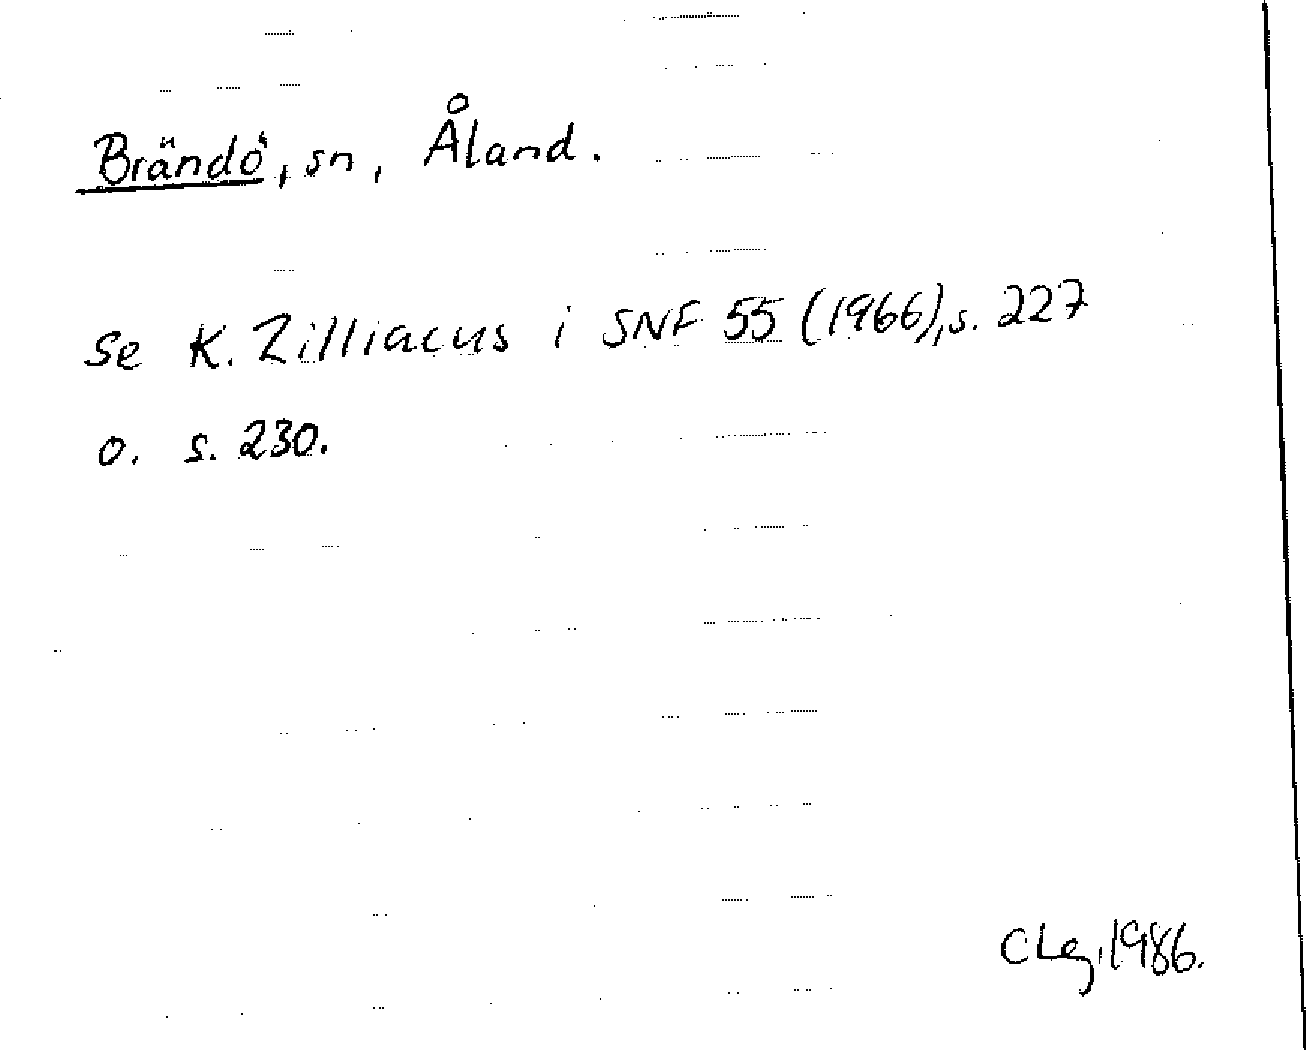 Brändö, sn, Åland.
se K. Zilliacus i SNF 55 (1966), s. 227
o. s. 230.
CLg, 1986.